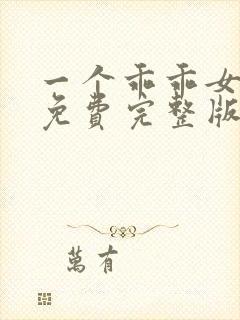 一个乖乖女
免费完整版
萬有